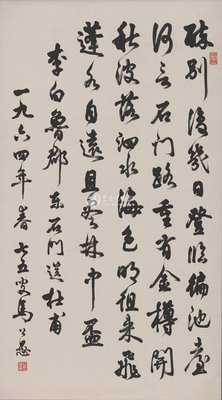 醉别復幾日登临徧池臺
何言石门路重有金樽開
秋波落泗水海色明徂来飛
蓬各自遠且尽林中盃
李白魯郡东石门送杜甫
一九六四年春七五叟馬公愚